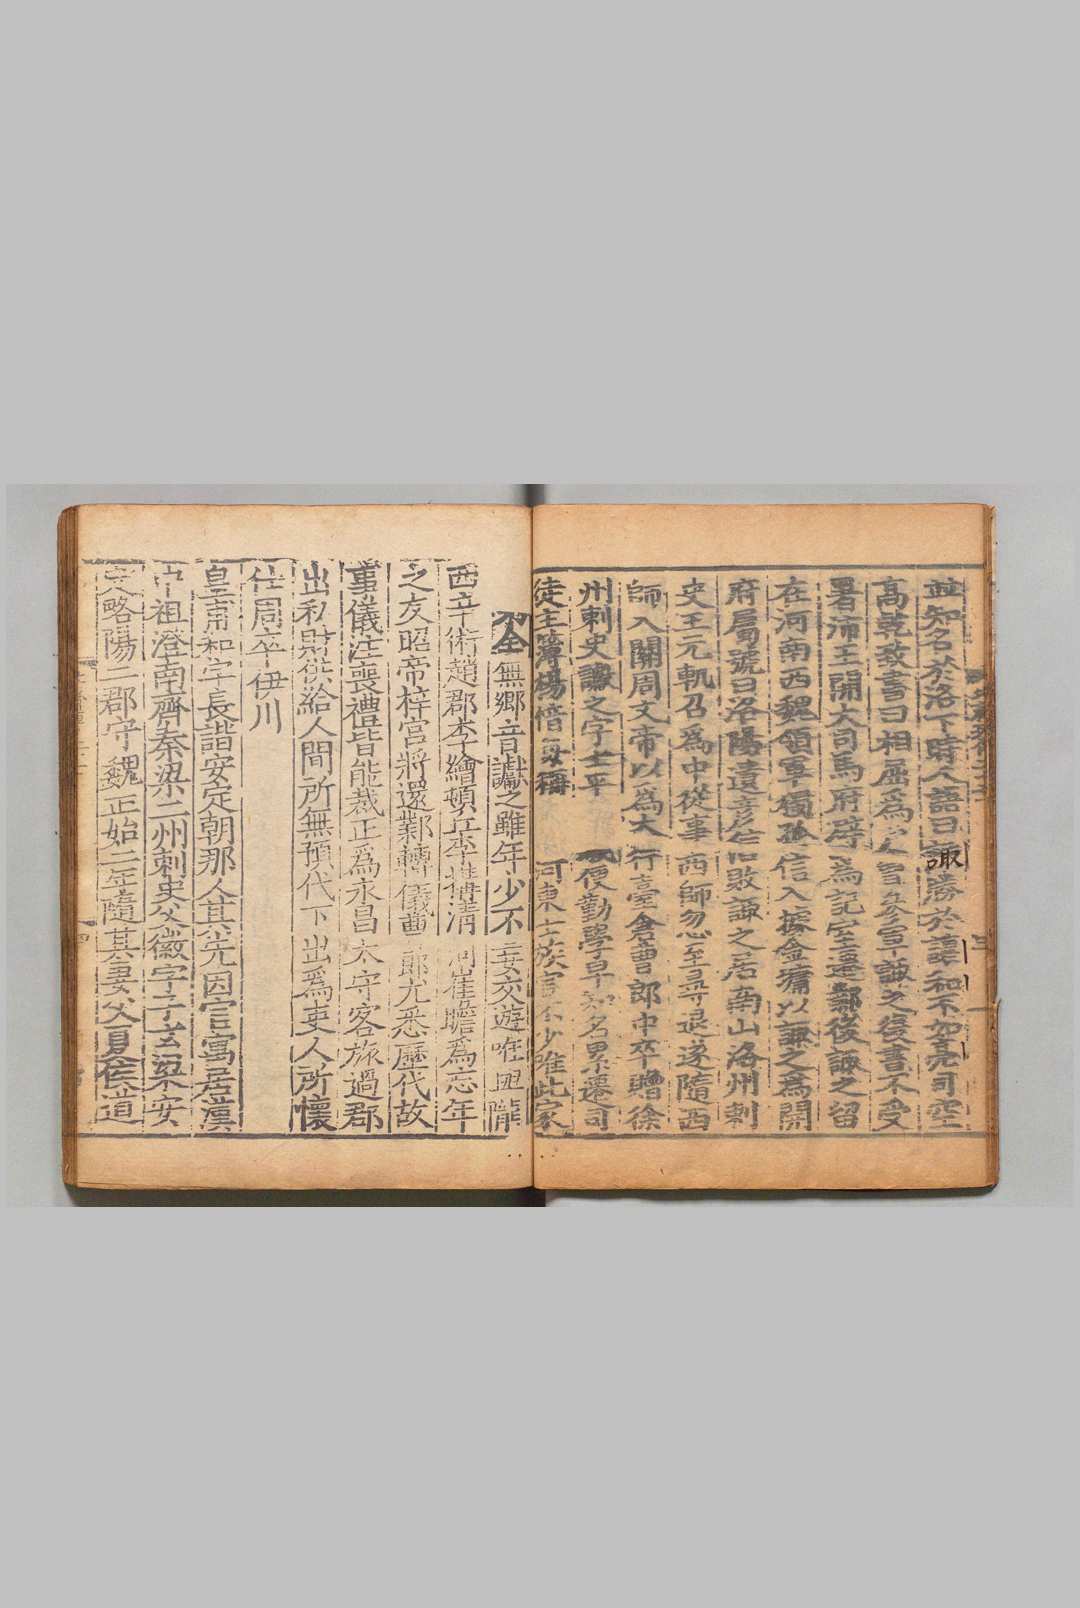 並知名於洛下時人語曰諏勝於讓和不如亮司空
高乾致書曰相屈為戶曹參軍諏之復書不受
署沛王開大司馬府辟為記室遷鄴後諏之留
在河南西魏領軍獨孤信入據金墉以諏之為開
府屬號曰洛陽遺彥信敗諏之居南山洛州刺
史王元軌召為中從事西師忽至尋退遂隨西
師入關周文帝以為大行臺倉曹郎中卒贈徐
州刺史讞之字士平便勤學早知名累遷司
徒主簿楊愔每稱河東士族官不少唯此家
全無鄉音讞之雖年少不妄交遊唯與隴
西辛術趙郡李繪頓丘李構清河崔瞻為忘年
之友昭帝梓宮將還鄴轉儀曹郎尤悉歷代故
事儀注喪禮皆能裁正為永昌太守客旅過郡
出私財供給人間所無預代下出為吏人所懷
仕周卒伊川
皇甫和字長諧安定朝那人其先因官寓居漢
中祖澄南齊秦梁二州刺史父徽字子玄梁安
定略陽二郡守魏正始二年隨其妻父夏侯道